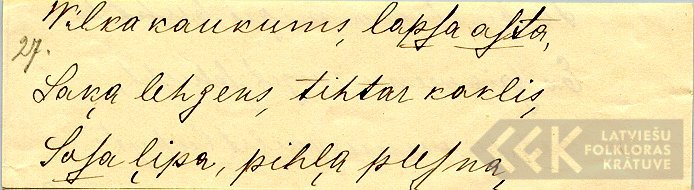 Wilka kaukums, lapsa asta,
27.
Saķa lehgens, tihtar kaklis,
Sosa ļipa, pihļa plesna,
LATVIEŠU
FOLKLORAS
KRĀTUVE